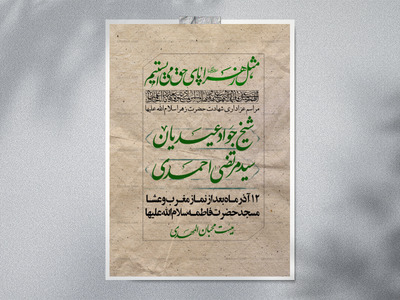 مثل زهرا پای حق می ایستیم
مراسم عزاداری شهادت حضرت زهرا سلام الله علیها
شیخ جواد عیدیان
سید مرتضی احمدی
۱۲ آذر ماه بعد از نماز مغرب و عشا
مسجد حضرت فاطمه سلام الله علیها
هیئت محبان المهدی